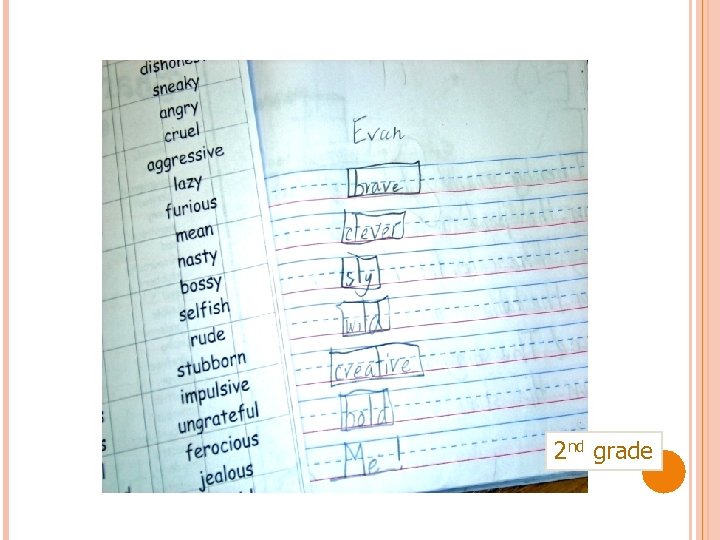 dishones
sneaky
angry
cruel
aggressive
lazy
furious
mean
nasty
bossy
selfish
rude
stubborn
impulsive
ungrateful
ferocious
jealous
Evan
brave
clever
sly
wild
creative
bold
Me!
2nd grade